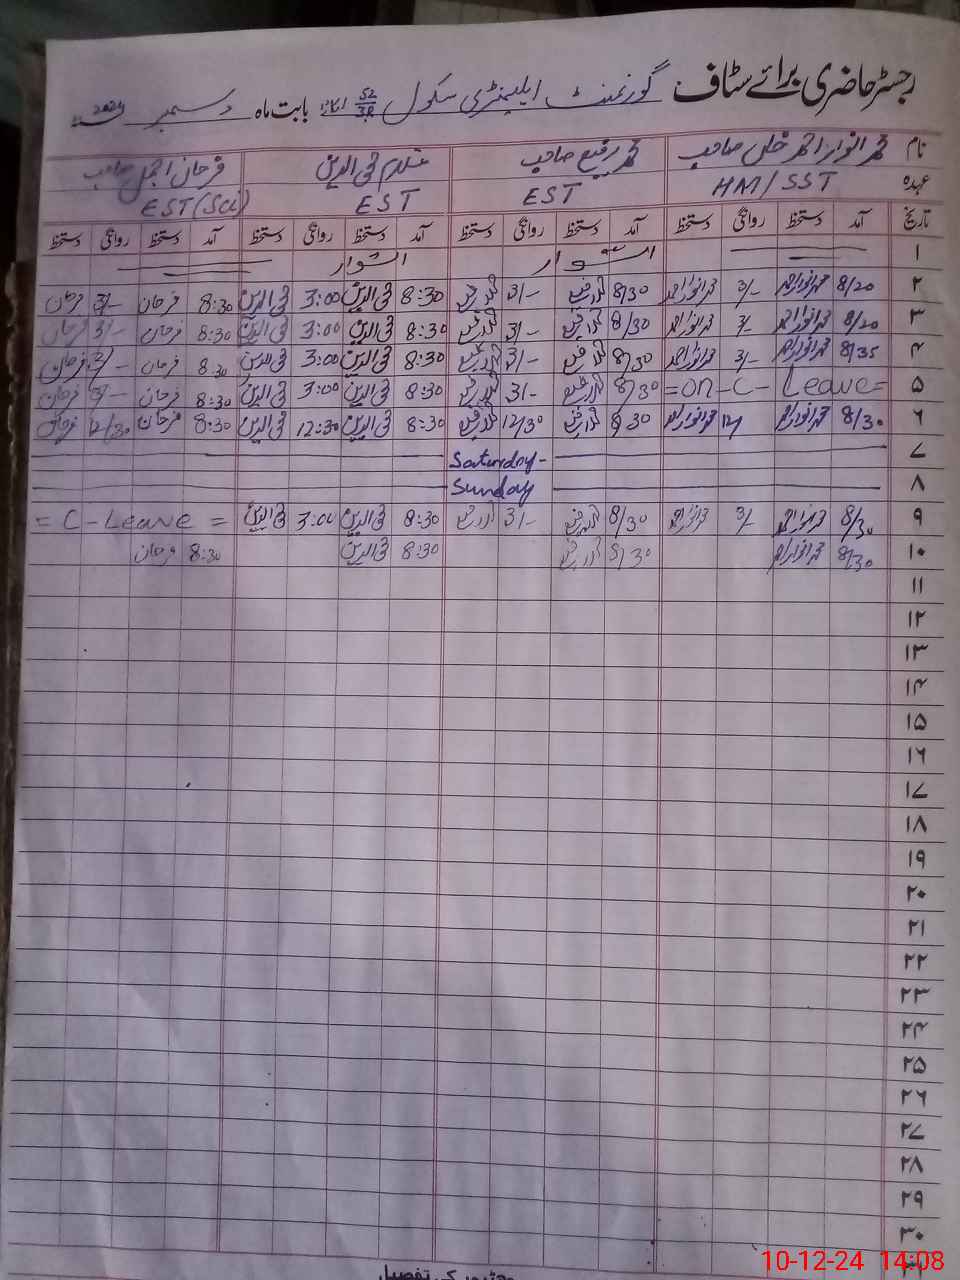 رجسٹر حاضری برائے سٹاف گورنمنٹ ایلیمنٹری سکول 52/3R بابت ماہ دسمبر 2024
نام محمد انوار احمد خاں صاحب محمد رفیع صاحب غلام محی الدین فرحان اجمل صاحب
عہدہ HM/SST EST EST EST (Sci)
تاریخ آمد دستخط روانگی دستخط آمد دستخط روانگی دستخط آمد دستخط روانگی دستخط آمد دستخط روانگی دستخط
۱ اتوار اتوار
۲ 8/20 محمد انوار احمد 3/- محمد انوار احمد 8/30 محمد رفیع 3/- محمد رفیع 8:30 محی الدین 3:00 محی الدین 8:30 فرحان 3/- فرحان
۳ 8/20 محمد انوار احمد 3/- محمد انوار احمد 8/30 محمد رفیع 3/- محمد رفیع 8:30 محی الدین 3:00 محی الدین 8:30 فرحان 3/- فرحان
۴ 8/35 محمد انوار احمد 3/- محمد انوار احمد 8/30 محمد رفیع 3/- محمد رفیع 8:30 محی الدین 3:00 محی الدین 8:30 فرحان 3/- فرحان
۵ =on-C-Leave= 8/30 محمد رفیع 3/- محمد رفیع 8:30 محی الدین 3:00 محی الدین 8:30 فرحان 3/- فرحان
۶ 8/30 محمد انوار احمد 12/ محمد انوار احمد 8/30 محمد رفیع 12/30 محمد رفیع 8:30 محی الدین 12:30 محی الدین 8:30 فرحان 12/30 فرحان
۷ Saturday-
۸ Sunday
۹ 8/30 محمد انوار احمد 3/- محمد انوار احمد 8/30 محمد رفیع 3/- محمد رفیع 8:30 محی الدین 3:00 محی الدین = C-Leave =
۱۰ 8/30 محمد انوار احمد 8/30 محمد رفیع 8:30 محی الدین 8:30 فرحان
۱۱
۱۲
۱۳
۱۴
۱۵
۱۶
۱۷
۱۸
۱۹
۲۰
۲۱
۲۲
۲۳
۲۴
۲۵
۲۶
۲۷
۲۸
۲۹
۳۰
۳۱
کی تفصیل
10-12-24 14:08